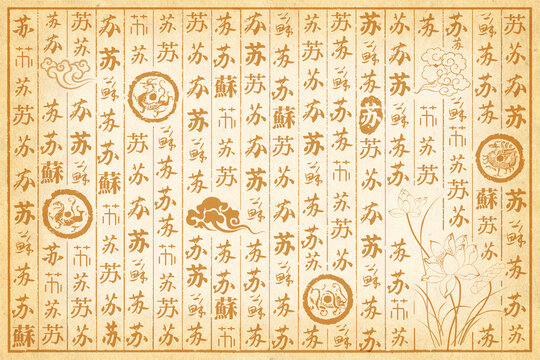 苏苏苏苏苏蘇苏苏苏
蘇苏苏苏蘇苏苏苏苏苏
苏苏苏苏苏苏
苏苏苏苏苏苏
苏苏蘇苏苏苏苏蘇苏苏
苏苏苏苏苏蘇苏苏苏苏
苏蘇苏苏苏苏苏苏苏苏
苏苏苏蘇苏苏苏苏
苏苏苏苏苏蘇苏苏苏苏
苏苏苏苏苏苏蘇苏苏苏
苏苏蘇苏苏苏苏苏蘇苏
苏苏苏苏苏蘇苏苏苏
蘇苏苏苏蘇苏苏苏苏苏
苏苏苏苏苏苏苏苏
苏苏苏苏苏蘇苏苏苏苏苏
苏苏苏苏蘇苏苏苏苏
蘇苏苏蘇苏苏苏蘇苏苏
苏苏苏苏苏苏苏苏苏苏蘇